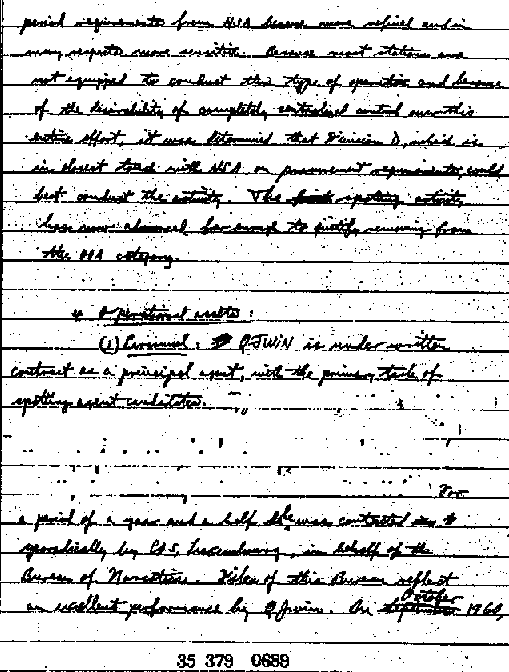 period requirements from NSA became more refined and in
many respects more sensitive. Because most stations are
not equipped to conduct this type of operation and because
of the desirability of completely centralized control over this
entire effort, it was determined that Division D, which is
in closest touch with NSA on procurement requirements, could
best conduct the activity. The spotting activity
has now advanced far enough to justify removing from
the OOA category.
4 Operational assets:
(1) Personnel: QJWIN is under written
contract as a principal agent, with the primary task of
spotting agent candidates.
For
a period of a year and a half he was contacted
sporadically by COS, Luxembourg, in behalf of the
Bureau of Narcotics. Files of this Bureau reflect
an excellent performance by QJWIN. In October September 1960,
35 379 0689